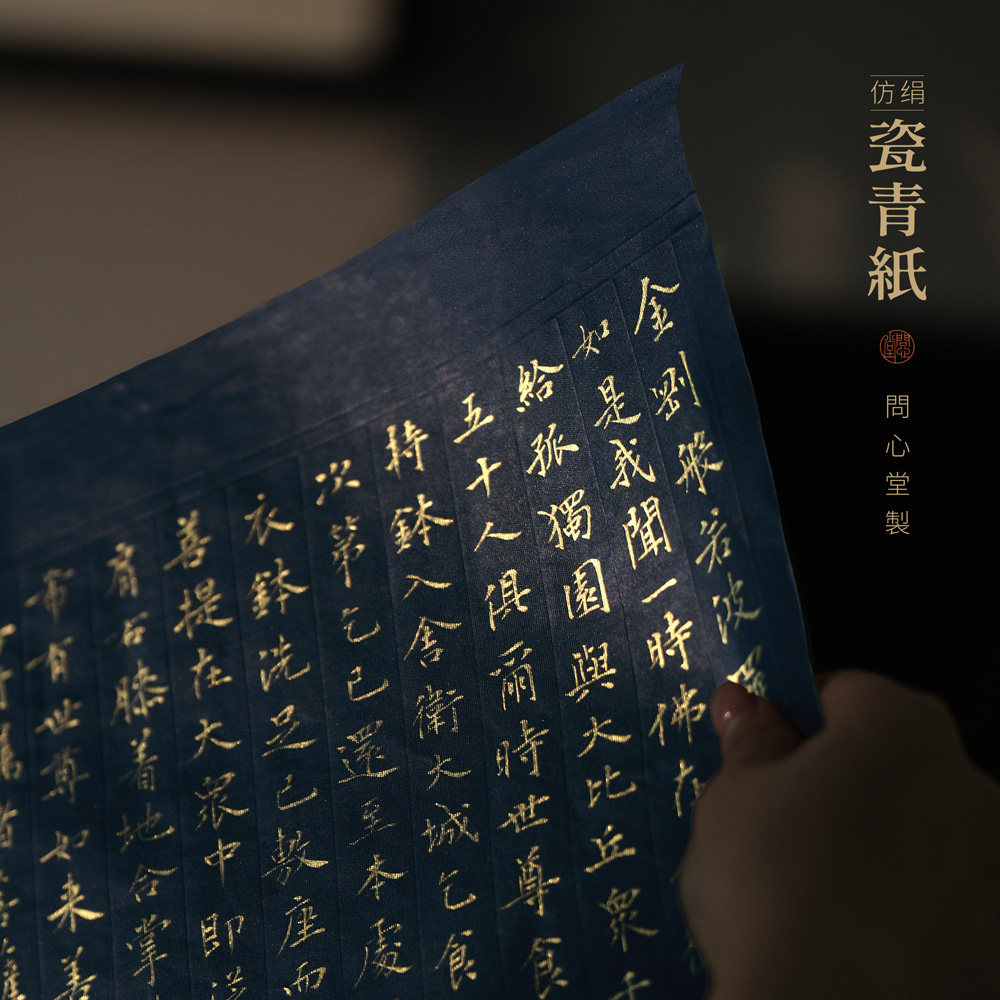 仿绢
瓷青紙
問心堂製
金剛般若波羅
如是我聞一時佛在
給孤獨園與大比丘衆千
五十人俱爾時世尊食
持鉢入舍衛大城乞食
次第乞已還至本處
衣鉢洗足已敷座而
善提在大衆中即從
肩右膝着地合掌
希有世尊如来善